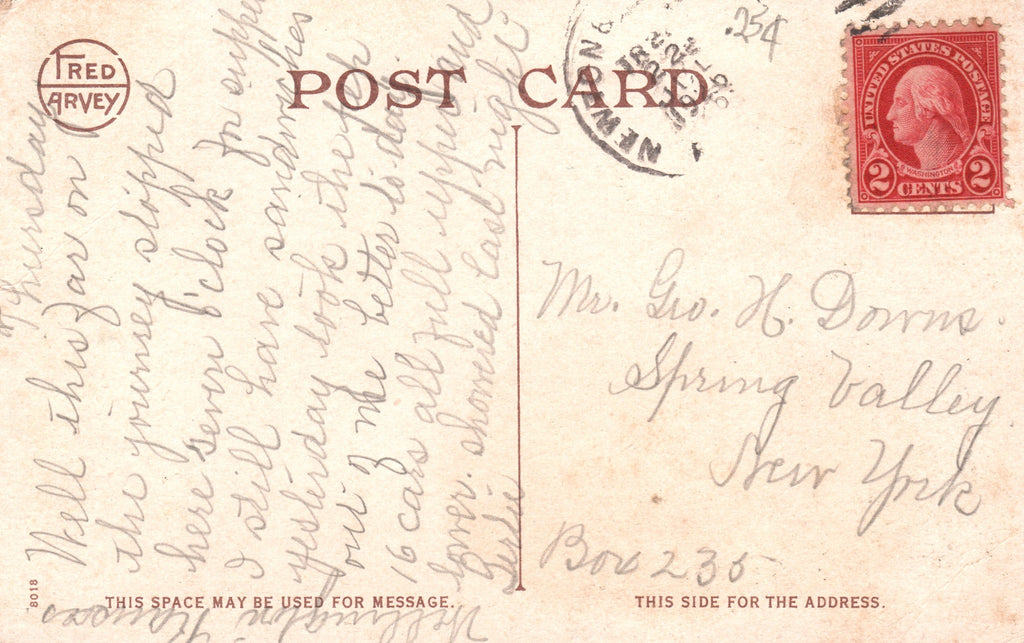 FRED
HARVEY
POST CARD
25¢
NEWTON
UNITED STATES POSTAGE
WASHINGTON
2 CENTS 2
Thursday
Well this far on
the journey stopped
here seven o'clock for supper
I still have sandwiches
yesterday took the pep
out of me better to day.
16 cars all full upper and
lower. showered last night
Mr. Geo. H. Downs.
Spring Valley
New York
Box 235
Wellington Kansas
8018
THIS SPACE MAY BE USED FOR MESSAGE.
THIS SIDE FOR THE ADDRESS.